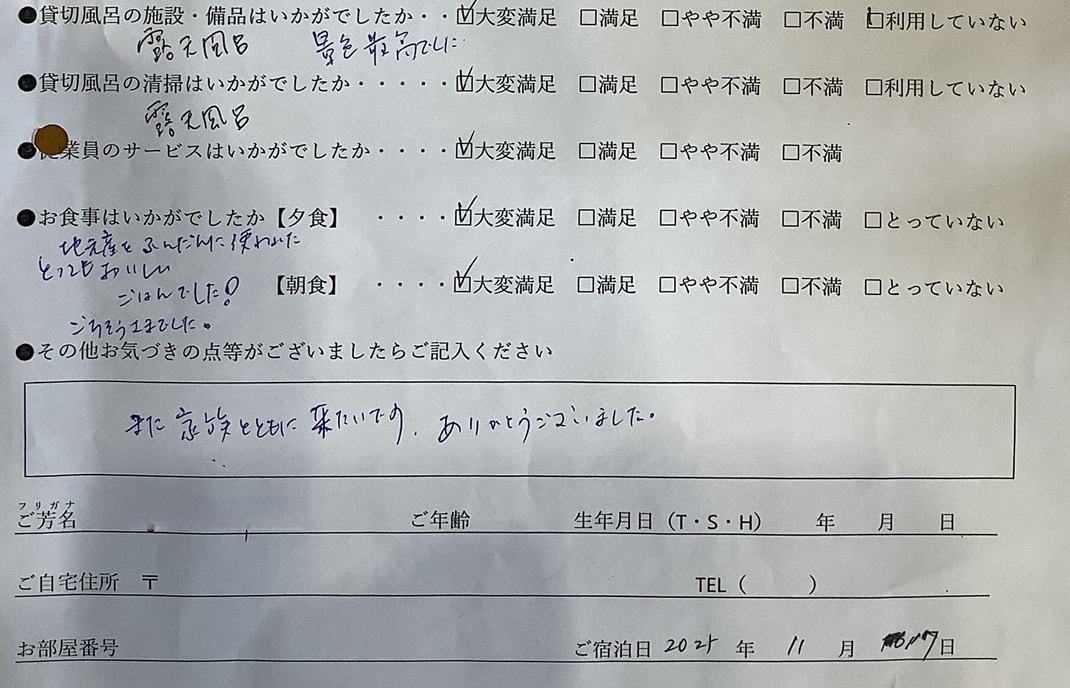 ●貸切風呂の施設・備品はいかがでしたか・・☑大変満足 □満足 □やや不満 □不満 □利用していない
露天風呂 景色最高でした
●貸切風呂の清掃はいかがでしたか・・・・・☑大変満足 □満足 □やや不満 □不満 □利用していない
露天風呂
●従業員のサービスはいかがでしたか・・・・☑大変満足 □満足 □やや不満 □不満
●お食事はいかがでしたか【夕食】 ・・・・☑大変満足 □満足 □やや不満 □不満 □とっていない
地元産をふんだんに使われた
とってもおいしい
ごはんでした!
【朝食】 ・・・・☑大変満足 □満足 □やや不満 □不満 □とっていない
ごちそうさまでした。
●その他お気づきの点等がございましたらご記入ください
また家族とともに来たいです。ありがとうございました。
フリガナ
ご芳名 ご年齢 生年月日(T・S・H) 年 月 日
ご自宅住所 〒 TEL( )
お部屋番号 ご宿泊日 2025 年 11 月 17日